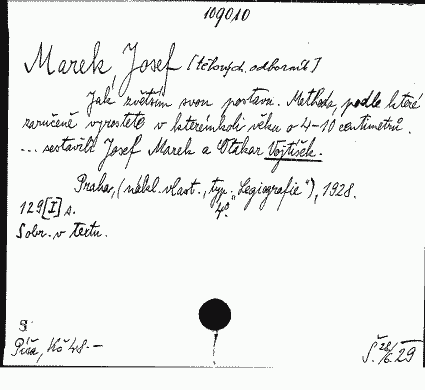 109010
Marek, Josef [tělových. odborník]
Jak zvětším svou postavu. Methoda, podle které
zaručeně vyrostete v kterémkoli věku o 4-10 centimetrů.
... sestavili Josef Marek a Otakar Vojtíšek.
Praha, (nákl. vlast., typ. "Legiografie"), 1928.
129 [I] s. 4°.
S obr. v textu.
S
Píša, Kč 48.-
Š. 28/6. 29